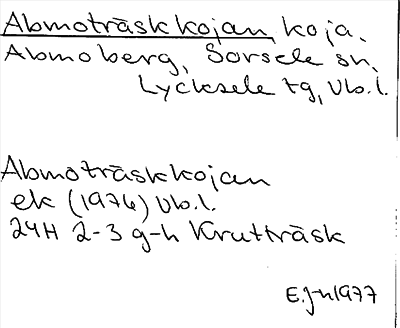 Abmoträskkojan, koja.
Abmoberg, Sorsele sn,
Lycksele tg, Vb.l.
Abmoträskkojan
ek (1974) Vb.l.
24H 2-3 g-h Krutträsk
E.J-n 1977